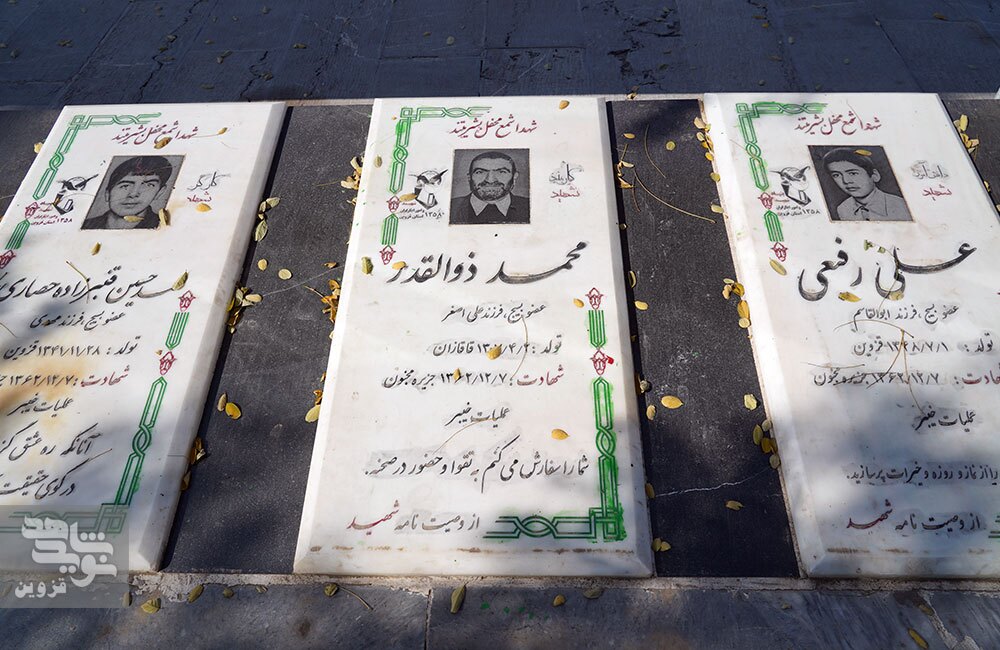 شهدا شمع محفل بشریتند
دانش آموز
شهید
۱۳۵۸
علی رفیعی
عضو بسیج ، فرزند ابوالقاسم
تولد : ۱۳۴۸/۷/۱ قزوین
شهادت : ۱۳۶۲/۱۲/۷ جزیره مجنون
عملیات خیبر
را از نماز و روزه و خیرات
از وصیت نامه شهید
شهدا شمع محفل بشریتند
کارمند
شهید
۱۳۵۸
محمد ذوالقدر
عضو بسیج ، فرزند علی اصغر
تولد : قاقازان
شهادت : ۱۳۶۲/۱۲/۷ جزیره مجنون
عملیات خیبر
شما را سفارش می کنم به تقوا و حضور در صحنه.
از وصیت نامه شهید
شهدا شمع محفل بشریتند
کارگر
شهید
استان قزوین ۱۳۵۸
حسین قنبرزاده حصاری
عضو بسیج ، فرزند مهدی
تولد : ۱۳۴۱/۱۱/۲۸ قزوین
شهادت : ۱۳۶۲/۱۲/۷
عملیات خیبر
آنانکه ره عشق
در کوی حقیقت
نوید شاهد
قزوین